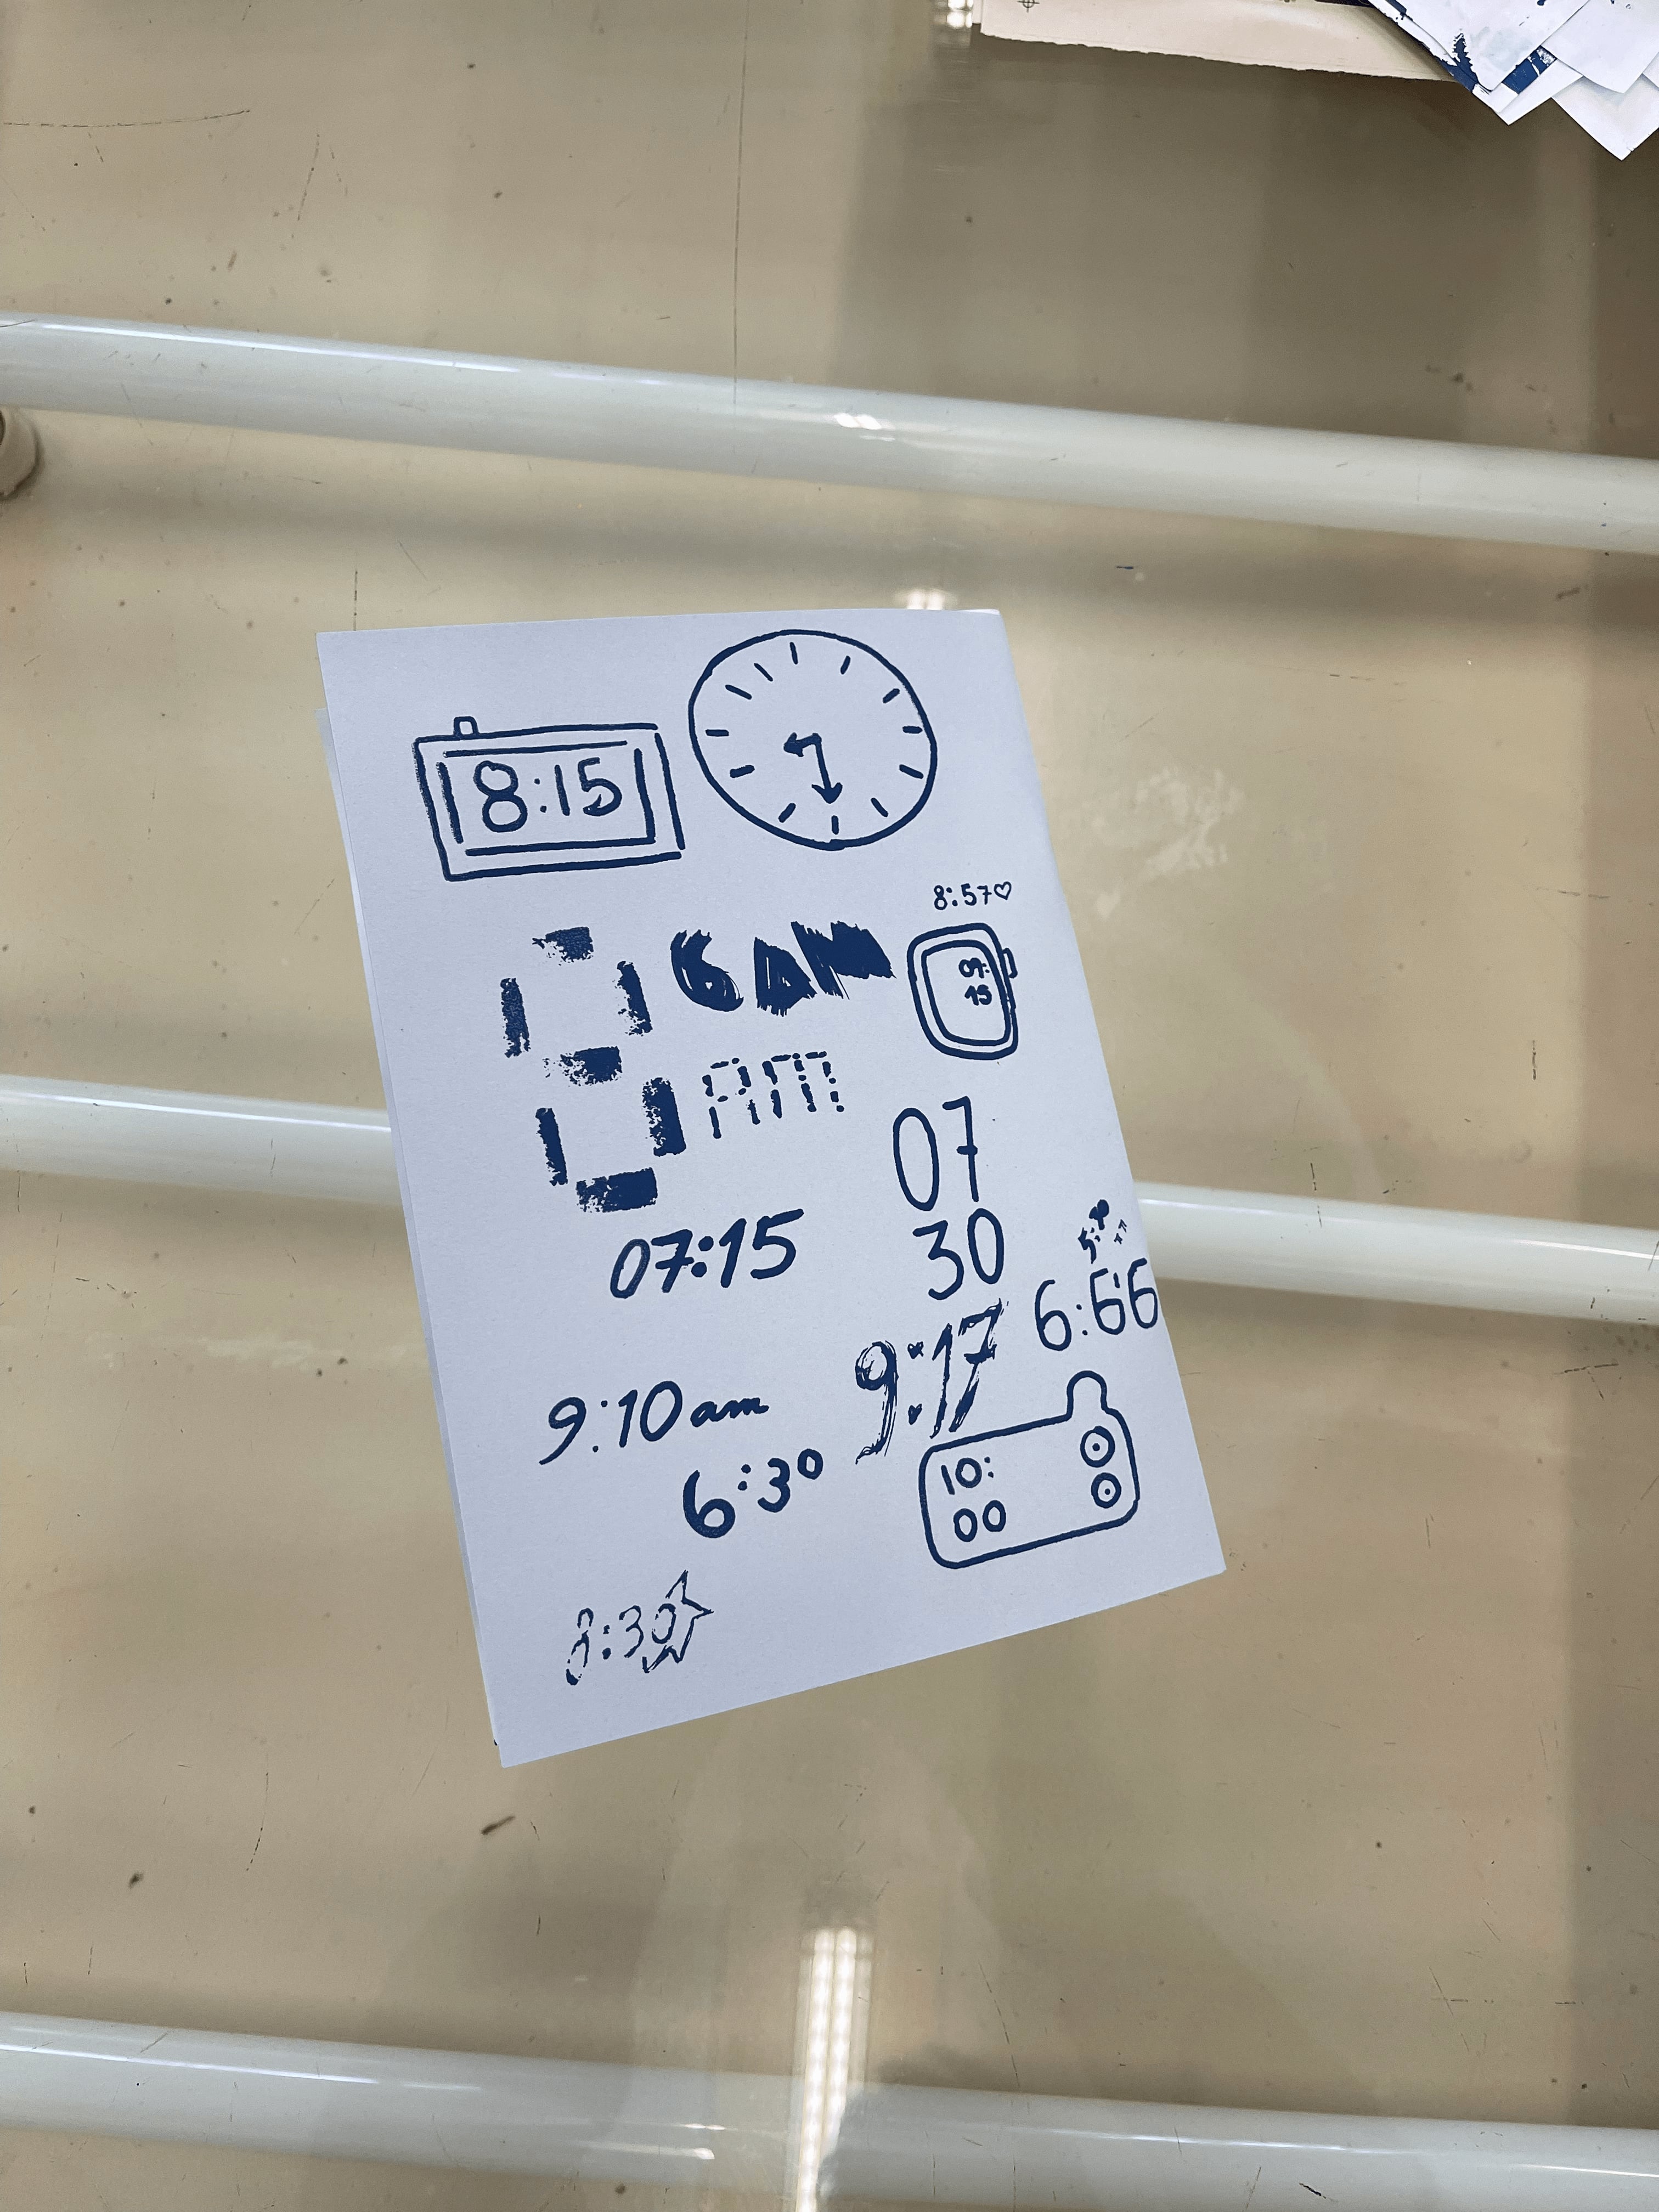 8:15
8:57♡
6 AM
07:
15
8
AM
07
30
07:15
5:30
6:66
9:17
9:10 am
6:30
10:
00
8:30